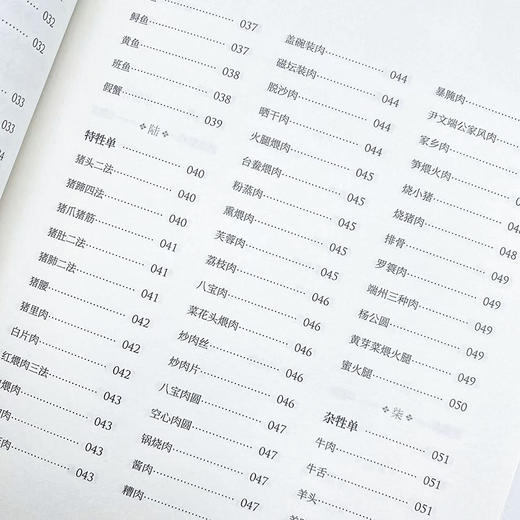 032
033
033
033
034
037
鲟鱼 037
黄鱼 038
班鱼 038
假蟹 039
陆
特牲单
猪头二法 040
猪蹄四法 040
猪爪猪筋 041
猪肚二法 041
猪肺二法 041
猪腰 042
猪里肉 042
白片肉 042
红煨肉三法 043
煨肉 043
肉 043
肉
盖碗装肉 044
磁坛装肉 044
脱沙肉 044
晒干肉 044
火腿煨肉 045
台鲞煨肉 045
粉蒸肉 045
熏煨肉 045
芙蓉肉 045
荔枝肉 046
八宝肉 046
菜花头煨肉 046
炒肉丝 046
炒肉片 046
八宝肉圆 047
空心肉圆 047
锅烧肉 047
酱肉 047
糟肉
暴腌肉
尹文端公家风肉
家乡肉
笋煨火肉
烧小猪 048
烧猪肉 048
排骨 048
罗簑肉 049
端州三种肉 049
杨公圆 049
黄芽菜煨火腿 049
蜜火腿 050
柒
杂牲单
牛肉 051
牛舌 051
羊头 051